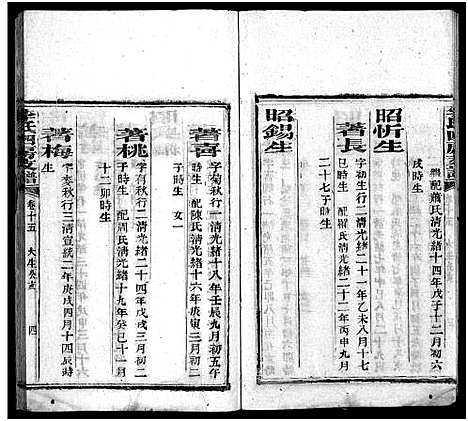 配蕭氏清光緒十四年戊子十二月初六
戌時生
昭忻生
著長
字初生清光緒二十一年乙未八月十七
巳時生 配羅氏清光緒二十二年丙申九月
二十七子時生
昭錫生
著喜
字菊秋行一清光緒十八年壬辰九月初五午
時生 配陳氏清光緒十六年庚寅三月初二
子時生 女一
著桃
字 秋行二清光緒二十四年戊戌三月初二
時生 配周氏清光緒十九年癸巳十一月
十二卯時生
著梅
字 秋行三清宣統二年庚戌四月十四辰時
生
氏四房支譜
卷十五
四